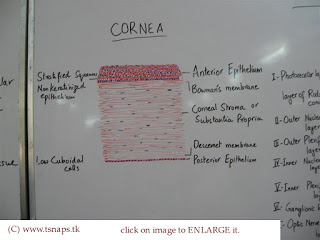 CORNEA
Stratified Squamous
Non keratinized
epithelium
Anterior Epithelium
Bowman's membrane
Corneal Stroma or
Substantia Propria
Descemet membrane
Posterior Epithelium
Low Cuboidal
cells
I- Photoreceptor
layer of Rods
II- Outer Nuclear
III- Outer Plexiform
IV- Inner Nuclear
layer
V- Inner Plexiform
Ganglionic
Optic Nerve
(C) www.tsnaps.tk
click on image to ENLARGE it.